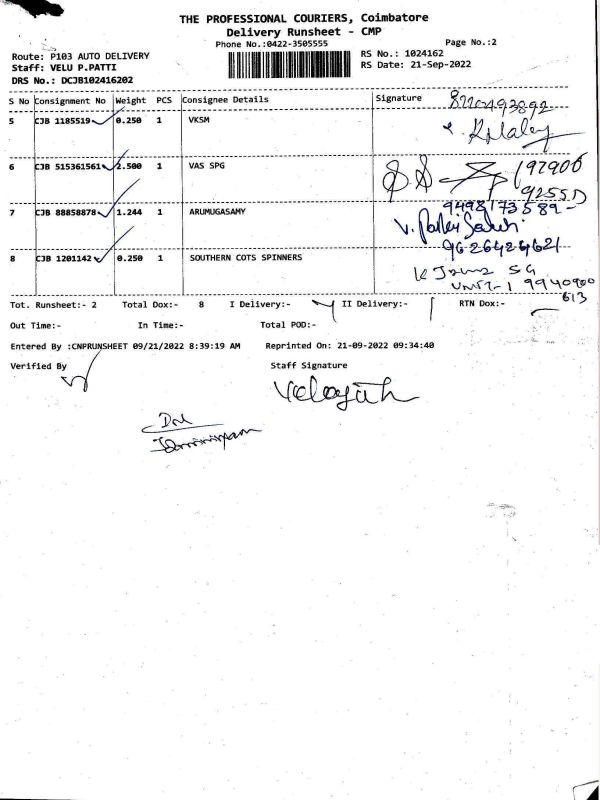 THE PROFESSIONAL COURIERS, Coimbatore
Delivery Runsheet - CMP
Phone No.:0422-3505555
Page No.:2
Route: P103 AUTO DELIVERY
RS No.: 1024162
Staff: VELU P.PATTI
RS Date: 21-Sep-2022
DRS No.: DCJB102416202
S No Consignment No Weight PCS Consignee Details Signature
8220493892
5 CJB 1185519 0.250 1 VKSM
6 CJB 515361561 2.500 1 VAS SPG
7 CJB 88858878 1.244 1 ARUMUGASAMY
9626424621
8 CJB 1201142 0.250 1 SOUTHERN COTS SPINNERS
UNIT-1 9940900
613
Tot. Runsheet:- 2 Total Dox:- 8 I Delivery:- II Delivery:- RTN Dox:-
Out Time:- In Time:- Total POD:-
Entered By :CNPRUNSHEET 09/21/2022 8:39:19 AM Reprinted On: 21-09-2022 09:34:40
Verified By Staff Signature